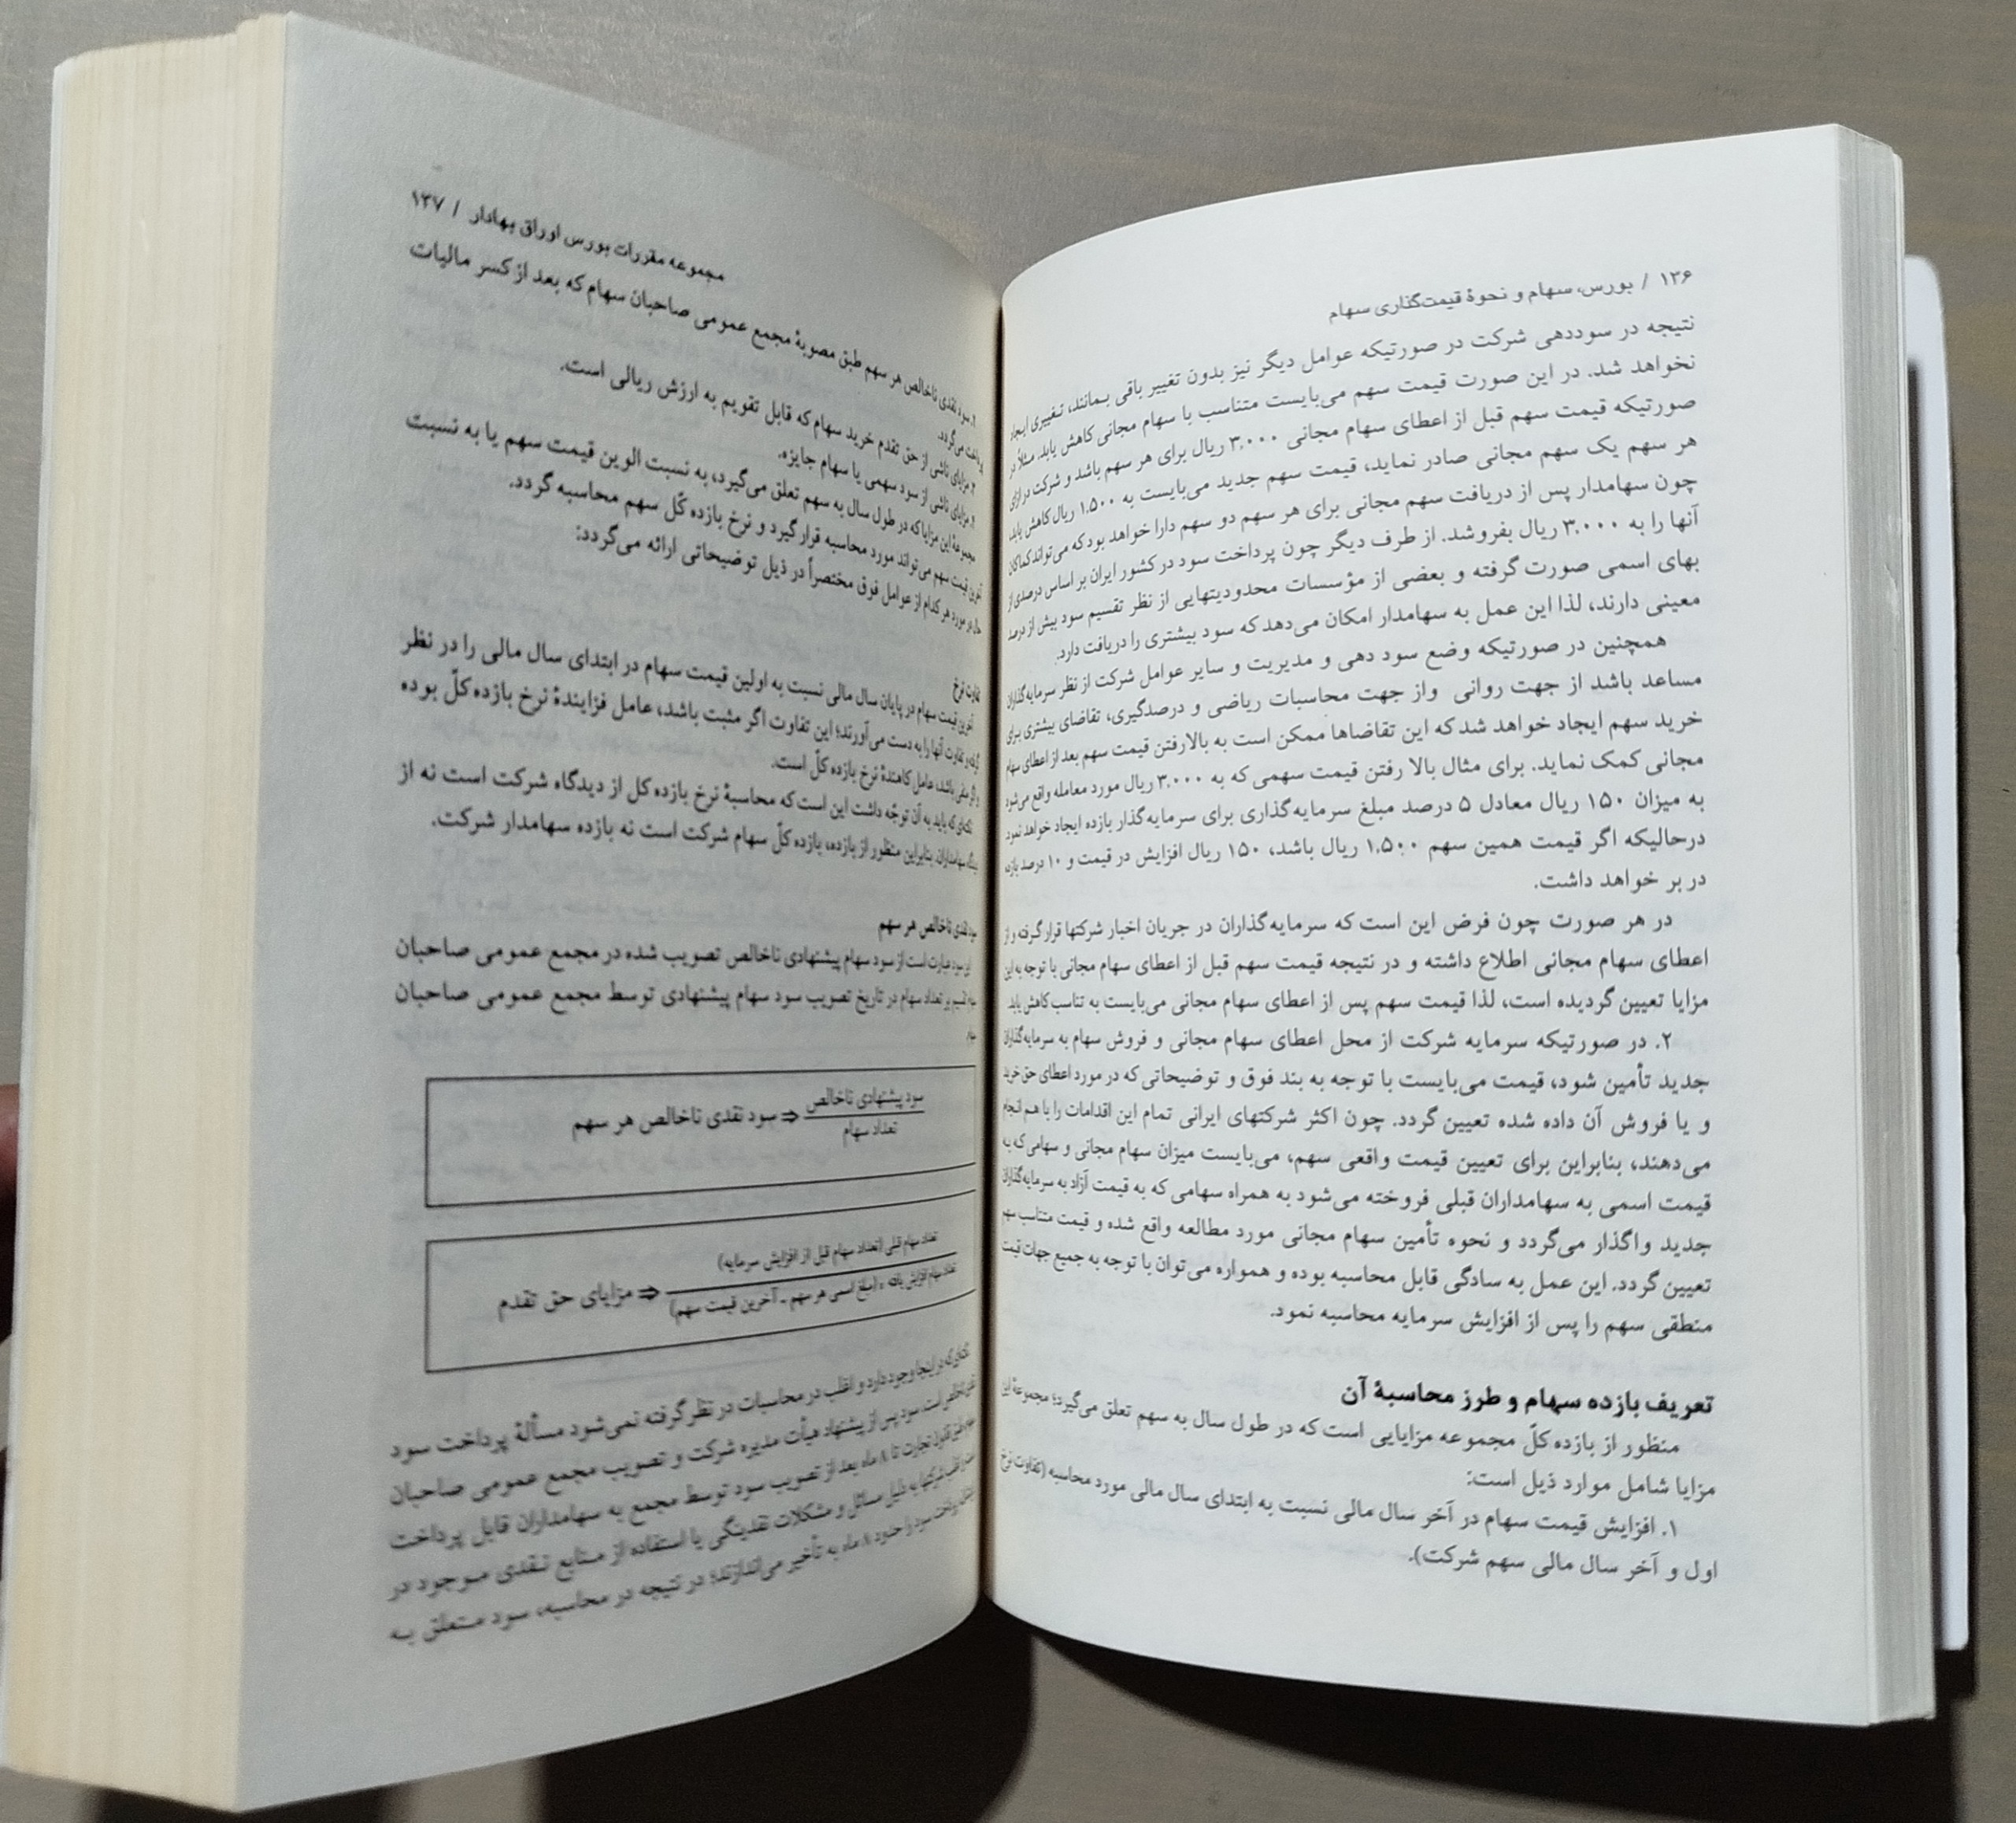 ۱۳۶ / بورس، سهام و نحوهٔ قیمت‌گذاری سهام
نتیجه در سوددهی شرکت در صورتیکه عوامل دیگر نیز بدون تغییر باقی بمانند، تغییری ایجاد
نخواهد شد. در این صورت قیمت سهم می‌بایست متناسب با سهام مجانی کاهش یابد. مثلاً در
صورتیکه قیمت سهم قبل از اعطای سهام مجانی ۳,۰۰۰ ریال برای هر سهم باشد و شرکت در ازای
هر سهم یک سهم مجانی صادر نماید، قیمت سهم جدید می‌بایست به ۱,۵۰۰ ریال کاهش یابد.
چون سهامدار پس از دریافت سهم مجانی برای هر سهم دو سهم دارا خواهد بود که می‌تواند کماکان
آنها را به ۳,۰۰۰ ریال بفروشد. از طرف دیگر چون پرداخت سود در کشور ایران بر اساس درصدی از
بهای اسمی صورت گرفته و بعضی از مؤسسات محدودیتهایی از نظر تقسیم سود بیش از درصد
معینی دارند، لذا این عمل به سهامدار امکان می‌دهد که سود بیشتری را دریافت دارد.
همچنین در صورتیکه وضع سود دهی و مدیریت و سایر عوامل شرکت از نظر سرمایه‌گذاران
مساعد باشد از جهت روانی واز جهت محاسبات ریاضی و درصدگیری، تقاضای بیشتری برای
خرید سهم ایجاد خواهد شد که این تقاضاها ممکن است به بالارفتن قیمت سهم بعد از اعطای سهام
مجانی کمک نماید. برای مثال بالا رفتن قیمت سهمی که به ۳,۰۰۰ ریال مورد معامله واقع می‌شود
به میزان ۱۵۰ ریال معادل ۵ درصد مبلغ سرمایه‌گذاری برای سرمایه‌گذار بازده ایجاد خواهد نمود
درحالیکه اگر قیمت همین سهم ۱,۵۰۰ ریال باشد، ۱۵۰ ریال افزایش در قیمت و ۱۰ درصد بازده
در بر خواهد داشت.
در هر صورت چون فرض این است که سرمایه‌گذاران در جریان اخبار شرکتها قرار گرفته و از
اعطای سهام مجانی اطلاع داشته و در نتیجه قیمت سهم قبل از اعطای سهام مجانی با توجه به این
مزایا تعیین گردیده است، لذا قیمت سهم پس از اعطای سهام مجانی می‌بایست به تناسب کاهش یابد.
۲. در صورتیکه سرمایه شرکت از محل اعطای سهام مجانی و فروش سهام به سرمایه‌گذاران
جدید تأمین شود، قیمت می‌بایست با توجه به بند فوق و توضیحاتی که در مورد اعطای حق خرید
و یا فروش آن داده شده تعیین گردد. چون اکثر شرکتهای ایرانی تمام این اقدامات را با هم انجام
می‌دهند، بنابراین برای تعیین قیمت واقعی سهم، می‌بایست میزان سهام مجانی و سهامی که به
قیمت اسمی به سهامداران قبلی فروخته می‌شود به همراه سهامی که به قیمت آزاد به سرمایه‌گذاران
جدید واگذار می‌گردد و نحوه تأمین سهام مجانی مورد مطالعه واقع شده و قیمت متناسب سهم
تعیین گردد. این عمل به سادگی قابل محاسبه بوده و همواره می‌توان با توجه به جمیع جهات قیمت
منطقی سهم را پس از افزایش سرمایه محاسبه نمود.
تعریف بازده سهام و طرز محاسبهٔ آن
منظور از بازده کلّ مجموعه مزایایی است که در طول سال به سهم تعلق می‌گیرد؛ مجموعهٔ این
مزایا شامل موارد ذیل است:
۱. افزایش قیمت سهام در آخر سال مالی نسبت به ابتدای سال مالی مورد محاسبه (تفاوت نرخ
اول و آخر سال مالی سهم شرکت).
مجموعه مقررات بورس اوراق بهادار / ۱۳۷
۲. سود نقدی ناخالص هر سهم طبق مصوبهٔ مجمع عمومی صاحبان سهام که بعد از کسر مالیات
پرداخت می‌گردد.
۳. مزایای ناشی از حق تقدم خرید سهام که قابل تقویم به ارزش ریالی است.
۴. مزایای ناشی از سود سهمی یا سهام جایزه.
مجموعهٔ این مزایا که در طول سال به سهم تعلق می‌گیرد، به نسبت الوین قیمت سهم یا به نسبت
آخرین قیمت سهم می‌تواند مورد محاسبه قرار گیرد و نرخ بازده کّل سهم محاسبه گردد.
حال در مورد هر کدام از عوامل فوق مختصراً در ذیل توضیحاتی ارائه می‌گردد:
تفاوت نرخ
آخرین قیمت سهام در پایان سال مالی نسبت به اولین قیمت سهام در ابتدای سال مالی را در نظر
گرفته و تفاوت آنها را به دست می‌آورند؛ این تفاوت اگر مثبت باشد، عامل فزایندهٔ نرخ بازده کلّ بوده
و اگر منفی باشد، عامل کاهندهٔ نرخ بازده کلّ است.
نکته‌ای که باید به آن توجّه داشت این است که محاسبهٔ نرخ بازده کل از دیدگاه شرکت است نه از
سهامداران. بنابراین منظور از بازده، بازده کلّ سهام شرکت است نه بازده سهامدار شرکت.
سود نقدی ناخالص هر سهم
این سود عبارت است از سود سهام پیشنهادی ناخالص تصویب شده در مجمع عمومی صاحبان
سهام تقسیم بر تعداد سهام در تاریخ تصویب سود سهام پیشنهادی توسط مجمع عمومی صاحبان
سهام
سود پیشنهادی ناخالص
⇒ سود نقدی ناخالص هر سهم
تعداد سهام
تعداد سهام قبلی (تعداد سهام قبل از افزایش سرمایه)
⇒ مزایای حق تقدم
تعداد سهام افزایش یافته × (مبلغ اسمی هر سهم ـ آخرین قیمت سهم)
نکته‌ای که در اینجا وجود دارد و اقلب در محاسبات در نظر گرفته نمی‌شود مسألهٔ پرداخت سود
نقدی ناخالص است. سود پس از پیشنهاد هیأت مدیره شرکت و تصویب مجمع عمومی صاحبان
سهام طبق قانون تجارت تا ۸ ماه بعد از تصویب سود توسط مجمع به سهامداران قابل پرداخت
است و اقلب شرکتها به دلیل مسائل و مشکلات نقدینگی یا استفاده از منابع نقدی موجود در
پرداخت سود را حدود ۸ ماه به تأخیر می‌اندازند؛ در نتیجه در محاسبه، سود متعلق به